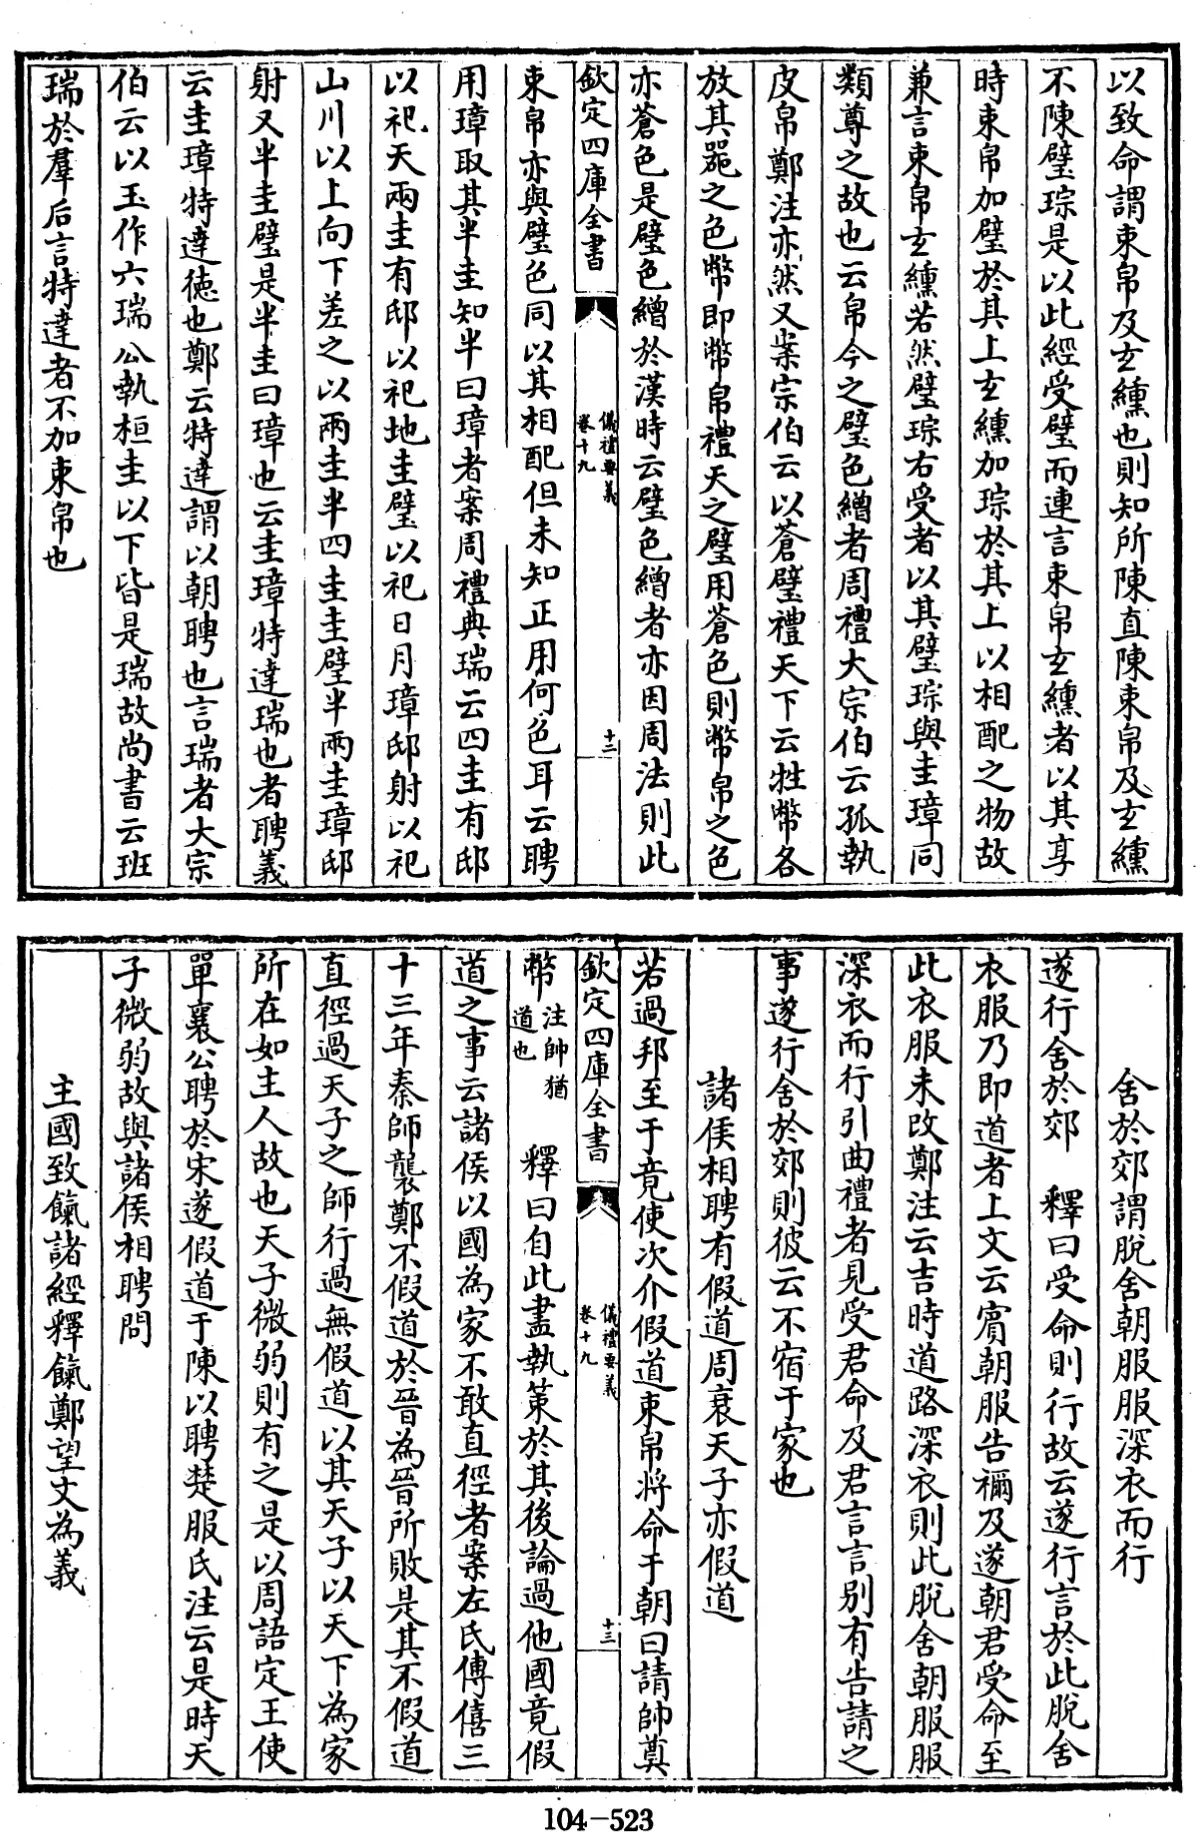 以致命謂束帛及玄纁也則知所陳直陳束帛及玄纁
不陳璧琮是以此經受璧而連言束帛玄纁者以其享
時束帛加璧於其上玄纁加琮於其上以相配之物故
兼言束帛玄纁若然璧琮右受者以其璧琮與圭璋同
類尊之故也云帛今之璧色繒者周禮大宗伯云孤執
皮帛鄭注亦然又案宗伯云以蒼璧禮天下云牲幣各
放其器之色幣即幣帛禮天之璧用蒼色則幣帛之色
亦蒼色是璧色繒於漢時云璧色繒者亦因周法則此
欽定四庫全書
儀禮要義
卷十九
十二
束帛亦與璧色同以其相配但未知正用何色耳云聘
用璋取其半圭知半曰璋者案周禮典瑞云四圭有邸
以祀天兩圭有邸以祀地圭璧以祀日月璋邸射以祀
山川以上向下差之以兩圭半四圭圭璧半兩圭璋邸
射又半圭璧是半圭曰璋也云圭璋特達瑞也者聘義
云圭璋特達徳也鄭云特達謂以朝聘也言瑞者大宗
伯云以玉作六瑞公執桓圭以下皆是瑞故尚書云班
瑞於羣后言特達者不加束帛也
舍於郊謂脫舍朝服服深衣而行
遂行舍於郊 釋曰受命則行故云遂行言於此脫舍
衣服乃即道者上文云賓朝服告禰及遂朝君受命至
此衣服未改鄭注云吉時道路深衣則此脫舍朝服服
深衣而行引曲禮者見受君命及君言言別有告請之
事遂行舍於郊則彼云不宿于家也
諸侯相聘有假道周衰天子亦假道
若過邦至于竟使次介假道束帛將命于朝曰請帥奠
欽定四庫全書
儀禮要義
卷十九
十三
幣 注帥猶道也 釋曰自此盡執策於其後論過他國竟假
道之事云諸侯以國為家不敢直徑者案左氏傳僖三
十三年秦師襲鄭不假道於晉為晉所敗是其不假道
直徑過天子之師行過無假道以其天子以天下為家
所在如主人故也天子微弱則有之是以周語定王使
單襄公聘於宋遂假道于陳以聘楚服氏注云是時天
子微弱故與諸侯相聘問
主國致餼諸經釋餼鄭望文為義
104-523